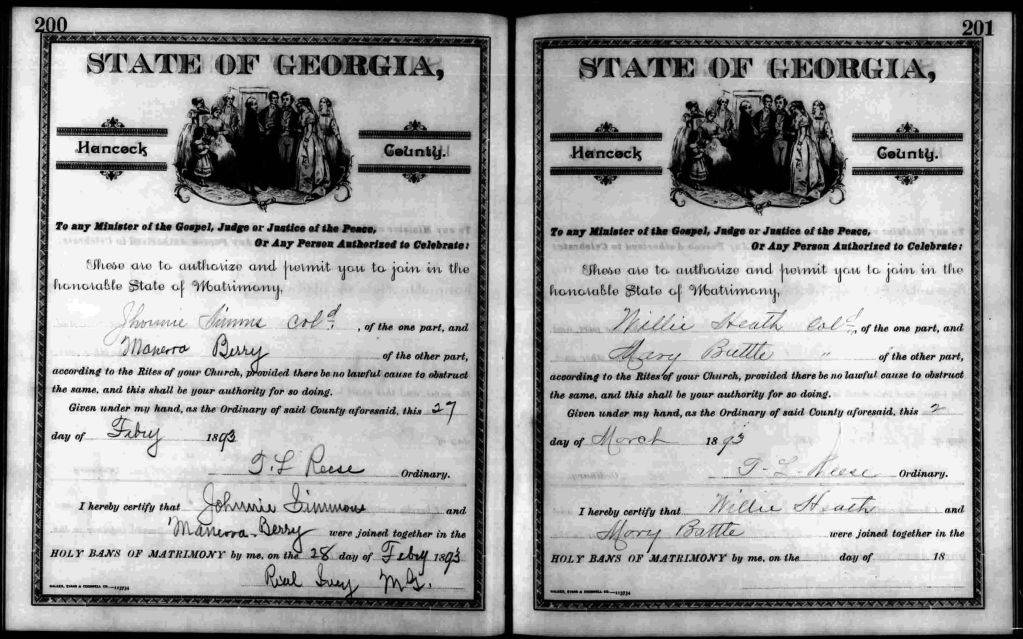 200
STATE OF GEORGIA,
Hancock County.
To any Minister of the Gospel, Judge or Justice of the Peace,
Or Any Person Authorized to Celebrate:
These are to authorize and permit you to join in the
honorable State of Matrimony,
Jhonnie Simms Cold. , of the one part, and
Manerva Berry of the other part,
according to the Rites of your Church, provided there be no lawful cause to obstruct
the same, and this shall be your authority for so doing.
Given under my hand, as the Ordinary of said County aforesaid, this 27
day of Feby 1893
T. L Reese Ordinary.
I hereby certify that Johnnie Simmons and
Manerva Berry were joined together in the
HOLY BANS OF MATRIMONY by me, on the 28 day of Feby 1893
M.G.
201
STATE OF GEORGIA,
Hancock County.
To any Minister of the Gospel, Judge or Justice of the Peace,
Or Any Person Authorized to Celebrate:
These are to authorize and permit you to join in the
honorable State of Matrimony,
Willie Heath Cold. , of the one part, and
Mary Battle " of the other part,
according to the Rites of your Church, provided there be no lawful cause to obstruct
the same, and this shall be your authority for so doing.
Given under my hand, as the Ordinary of said County aforesaid, this 2
day of March 1893
T. L. Reese Ordinary.
I hereby certify that Willie Heath and
Mary Battle were joined together in the
HOLY BANS OF MATRIMONY by me, on the day of 18